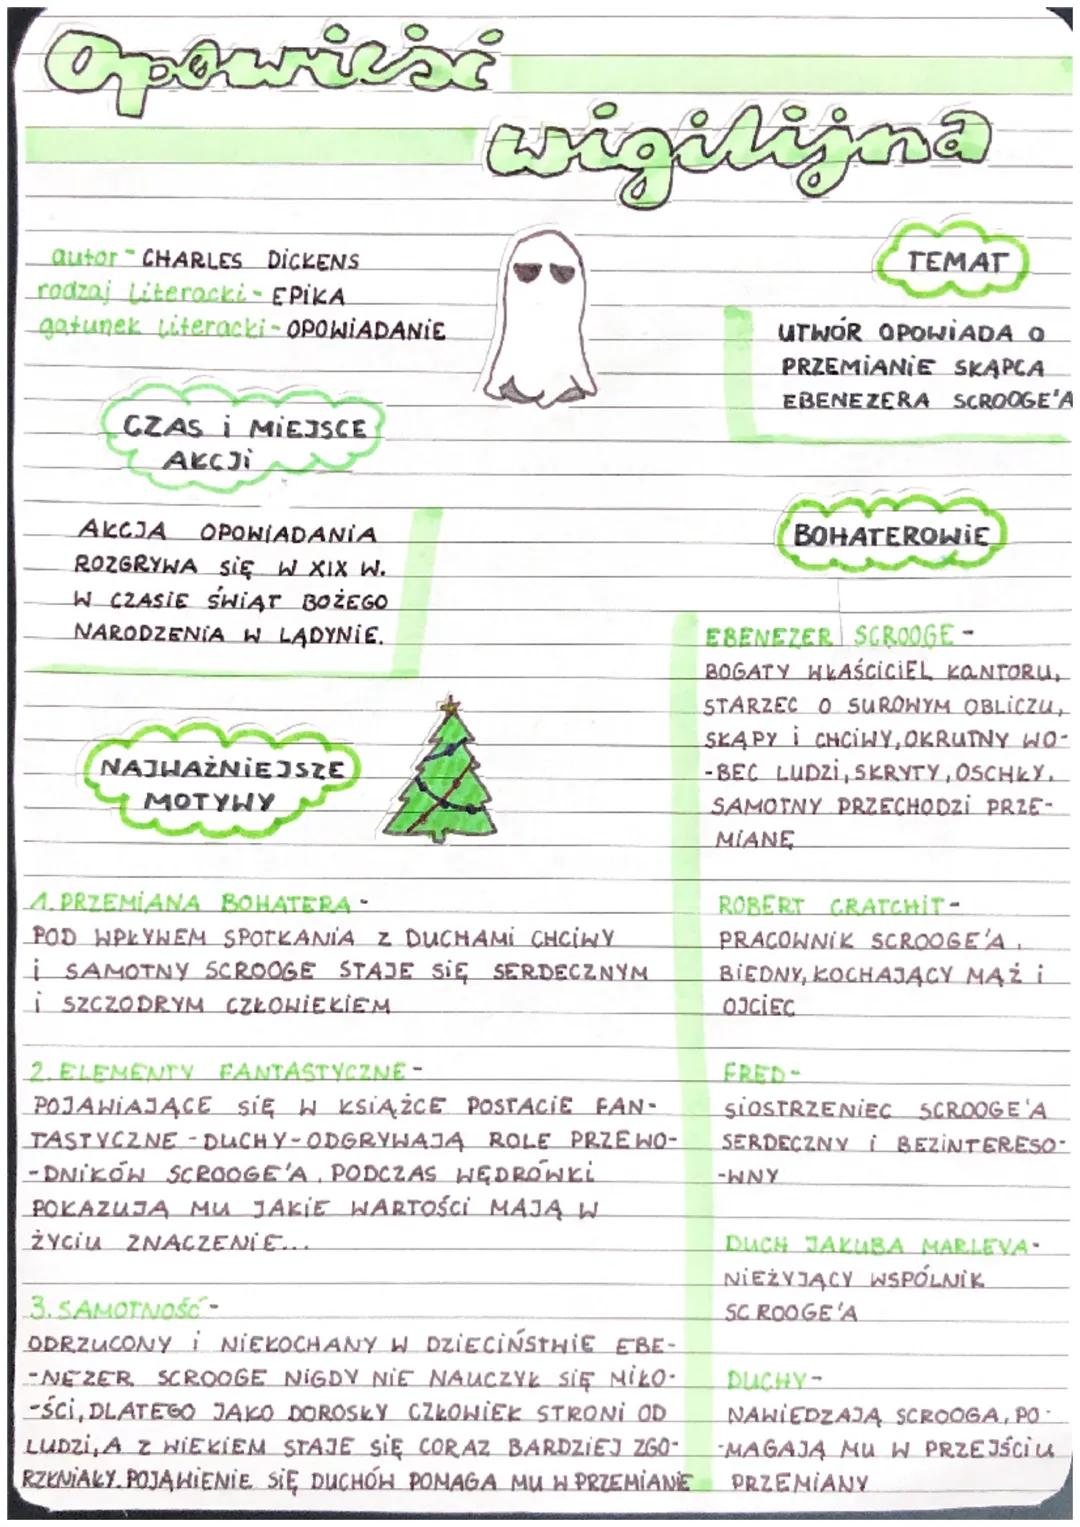 Opowieść
wigilijna
autor - CHARLES DICKENS
rodzaj literacki - EPIKA
gatunek literacki - OPOWIADANIE
TEMAT
UTWÓR OPOWIADA O
PRZEMIANIE SKĄPCA
EBENEZERA SCROOGE'A
CZAS i MIEJSCE
AKCJI
AKCJA OPOWIADANIA
ROZGRYWA SIĘ W XIX W.
W CZASIE ŚWIĄT BOŻEGO
NARODZENIA W LĄDYNIE.
BOHATEROWIE
EBENEZER SCROOGE -
BOGATY WŁAŚCICIEL KANTORU,
STARZEC O SUROWYM OBLICZU,
SKĄPY i CHCIWY, OKRUTNY WO-
-BEC LUDZI, SKRYTY, OSCHŁY.
SAMOTNY PRZECHODZI PRZE-
MIANĘ
ROBERT CRATCHIT -
PRACOWNIK SCROOGE'A,
BIEDNY, KOCHAJĄCY MĄŻ i
OJCIEC
FRED -
SIOSTRZENIEC SCROOGE'A
SERDECZNY i BEZINTERESO-
-WNY
DUCH JAKUBA MARLEYA -
NIEŻYJĄCY WSPÓLNIK
SCROOGE'A
DUCHY -
NAWIEDZAJĄ SCROOGA, PO-
-MAGAJĄ MU W PRZEJŚCIU
PRZEMIANY
NAJWAŻNIEJSZE
MOTYWY
1. PRZEMIANA BOHATERA -
POD WPŁYWEM SPOTKANIA Z DUCHAMI CHCIWY
i SAMOTNY SCROOGE STAJE SIĘ SERDECZNYM
i SZCZODRYM CZŁOWIEKIEM
2. ELEMENTY FANTASTYCZNE -
POJAWIAJĄCE SIĘ W KSIĄŻCE POSTACIE FAN-
TASTYCZNE - DUCHY - ODGRYWAJĄ ROLĘ PRZEWO-
-DNIKÓW SCROOGE'A. PODCZAS WĘDRÓWKI
POKAZUJĄ MU JAKIE WARTOŚCI MAJĄ W
ŻYCIU ZNACZENIE...
3. SAMOTNOŚĆ -
ODRZUCONY i NIEKOCHANY W DZIECIŃSTWIE EBE-
-NEZER SCROOGE NIGDY NIE NAUCZYŁ SIĘ MIŁO-
-ŚCI, DLATEGO JAKO DOROSŁY CZŁOWIEK STRONI OD
LUDZI, A Z WIEKIEM STAJE SIĘ CORAZ BARDZIEJ ZGO-
RZKNIAŁY. POJAWIENIE SIĘ DUCHÓW POMAGA MU W PRZEMIANIE